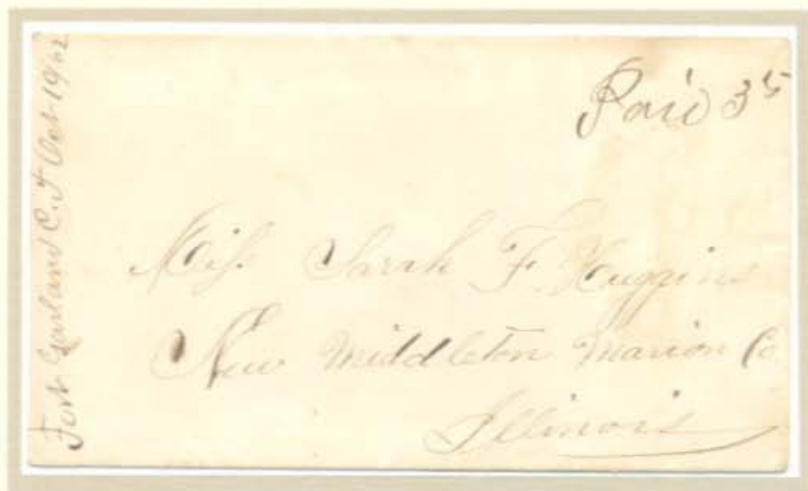 Fort Garland C.T Oct 19 62
Paid 3
Miss Sarah F. Huggins
New Middleton Marion Co
Illinois